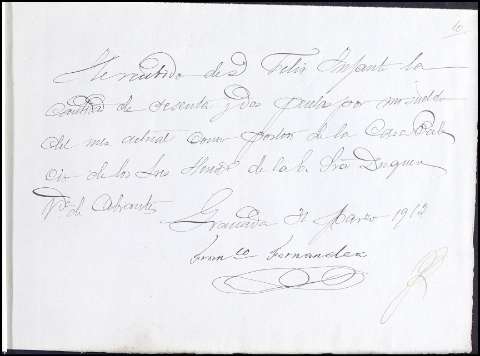 He recibido de D Felix Infant la
cantidad de sesenta y dos pesetas por mi sueldo
del mes actual como peston de la Casa Pala
cio de los Sres Hered de la E. Sra Duquesa
Vda de Abrantes
Granada 31 Marzo 1912
Franco Fernandez